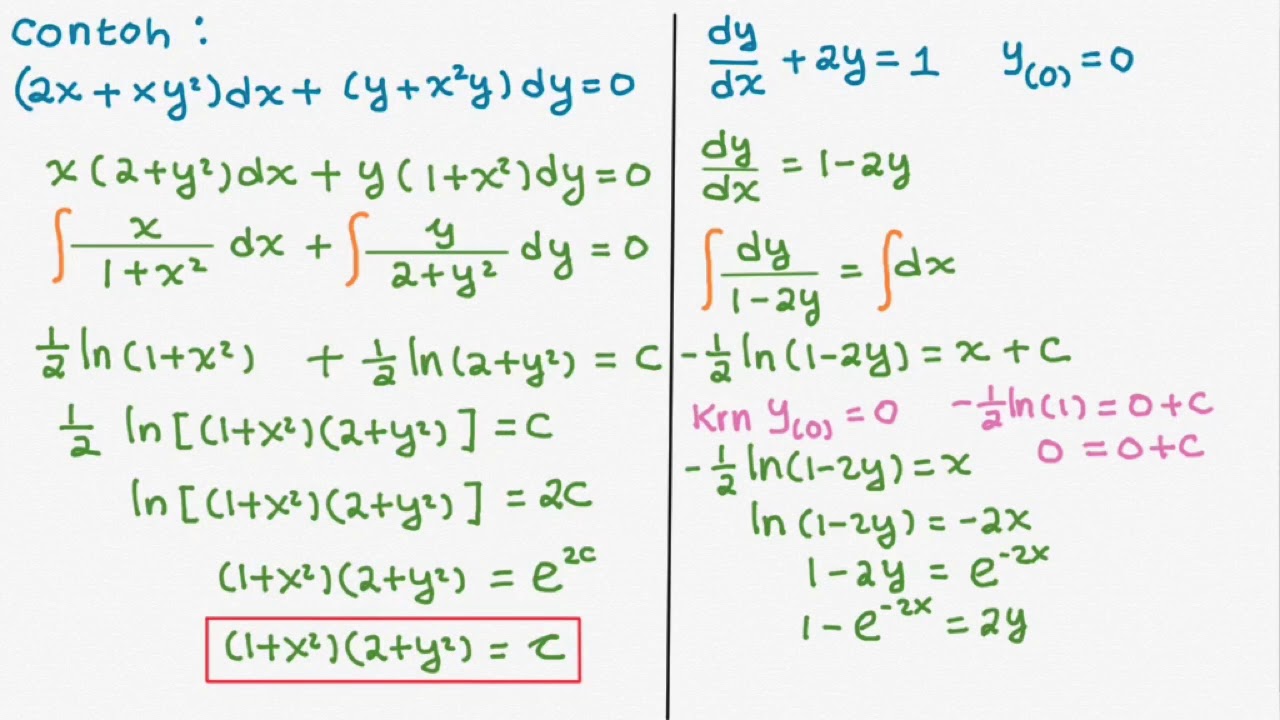 Contoh :
(2x + xy²)dx + (y + x²y) dy = 0
x (2+y²)dx + y (1+x²)dy = 0
∫ x/(1+x²) dx + ∫ y/(2+y²) dy = 0
½ ln(1+x²) + ½ ln(2+y²) = C
½ ln[(1+x²)(2+y²)] = C
ln[(1+x²)(2+y²)] = 2C
(1+x²)(2+y²) = e^(2C)
(1+x²)(2+y²) = C
dy/dx + 2y = 1 y₍₀₎ = 0
dy/dx = 1-2y
∫ dy/(1-2y) = ∫ dx
-½ ln(1-2y) = x + C
Krn y₍₀₎ = 0 -½ ln(1) = 0+C
0 = 0+C
-½ ln(1-2y) = x
ln(1-2y) = -2x
1-2y = e^(-2x)
1-e^(-2x) = 2y